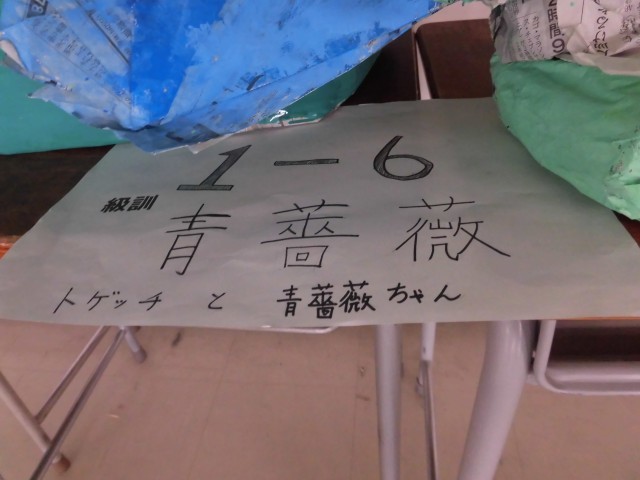 1-6
級訓
青薔薇
トゲッチと青薔薇ちゃん